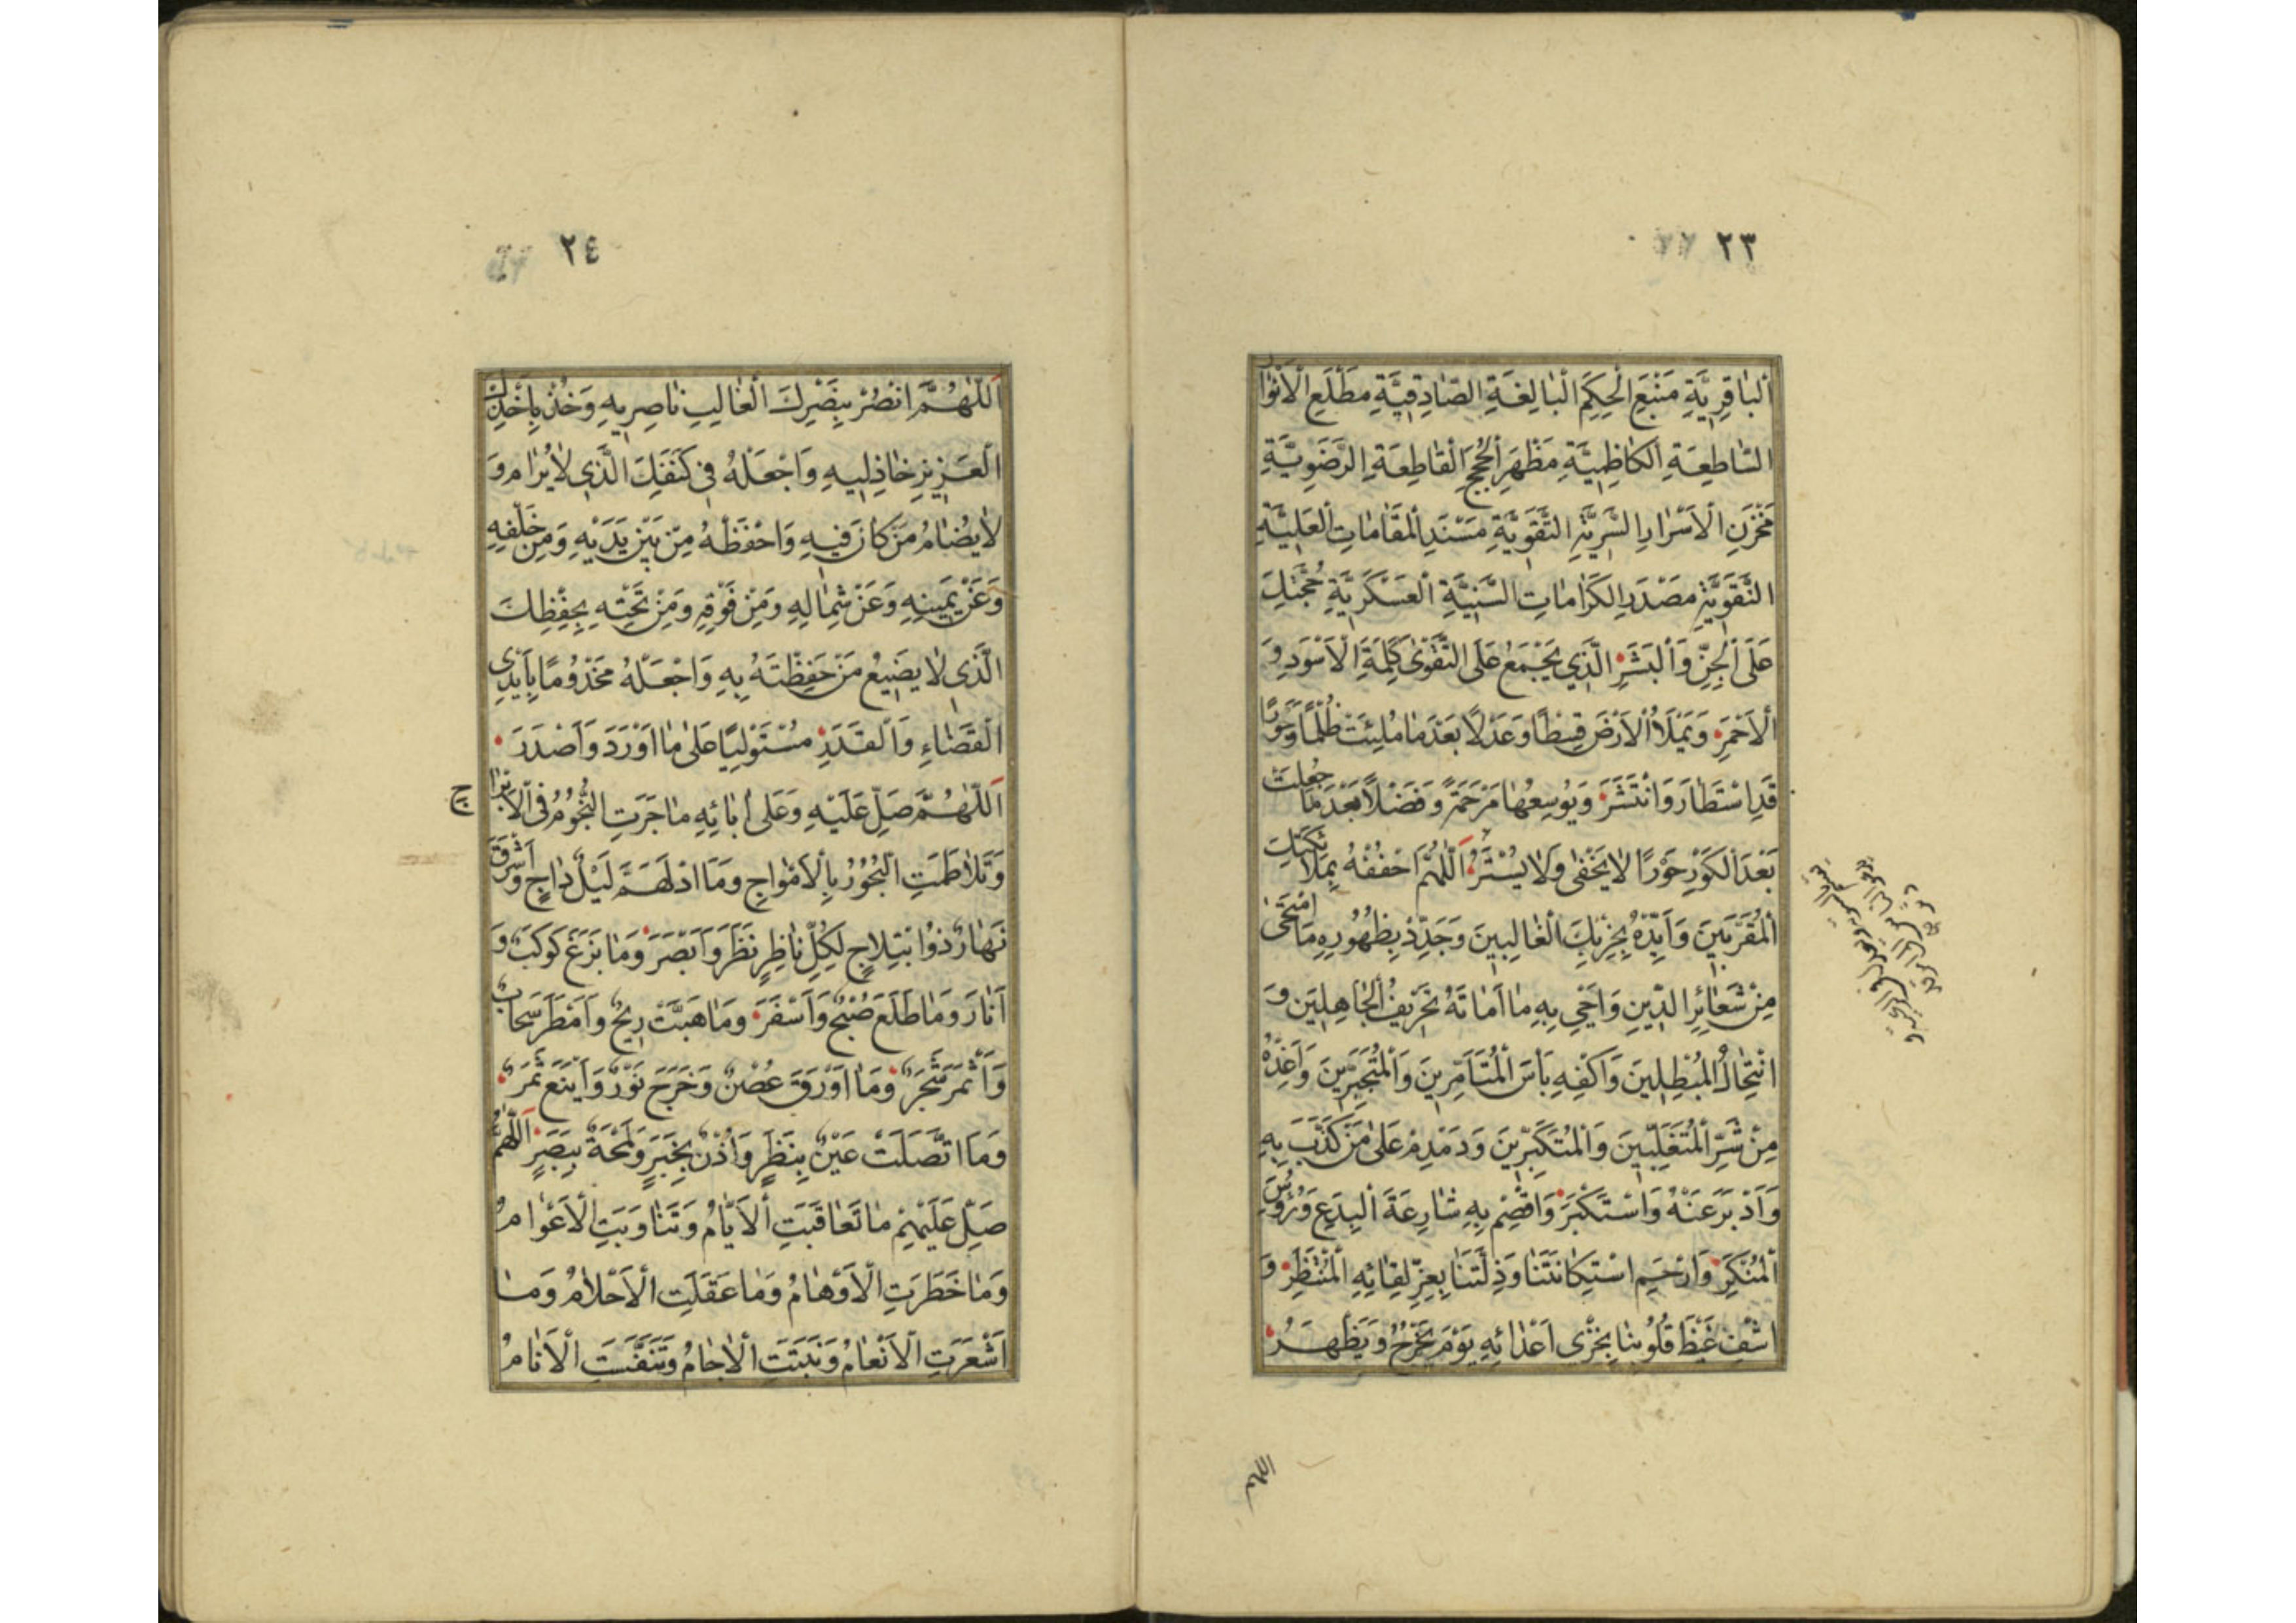 ٢٣
اَلْبٰاقِرِيَّةِ مَنْبَعِ الْحِكَمِ الْبٰالِغَةِ الصّٰادِقِيَّةِ مَطْلَعِ الْاَنْوٰارِ
السّٰاطِعَةِ الْكٰاظِمِيَّةِ مَظْهَرِ الْحُجَجِ الْقٰاطِعَةِ الرَّضَوِيَّةِ
مَخْزَنِ الْاَسْرٰارِ السَّرِيَّةِ التَّقَوِيَّةِ مَسْنَدِ الْمَقٰامٰاتِ الْعَلِيَّةِ
النَّقَوِيَّةِ مَصْدَرِ الْكَرٰامٰاتِ السَّنِيَّةِ الْعَسْكَرِيَّةِ حُجَّتِكَ
عَلَى الْجِنِّ وَالْبَشَرِ الَّذِي يَجْمَعُ عَلَى التَّقْوٰى كَلِمَةَ الْاَسْوَدِ وَ
الْاَحْمَرِ وَيَمْلَاُ الْاَرْضَ قِسْطًا وَعَدْلًا بَعْدَ مٰا مُلِئَتْ ظُلْمًا وَجَوْرًا
قَدِ اسْتَطٰارَ وَانْتَشَرَ وَيُوسِعُهٰا مَرْحَمَةً وَفَضْلًا بَعْدَ مٰا جُعِلَتْ
بَعْدَ الْكَوْرِ حَوْرًا لٰا يَخْفٰى وَلٰا يُسْتَرُ اَللّٰهُمَّ احْفُفْهُ بِمَلٰائِكَتِكَ
الْمُقَرَّبِينَ وَاَيِّدْهُ بِحِزْبِكَ الْغٰالِبِينَ وَجَدِّدْ بِظُهُورِهِ مَا امْتَحٰى
مِنْ شَعٰائِرِ الدِّينِ وَاَحْيِ بِهِ مٰا اَمٰاتَهُ تَحْرِيفُ الْجٰاهِلِينَ وَ
انْتِحٰالُ الْمُبْطِلِينَ وَاكْفِهِ بَأْسَ الْمُتَاَمِّرِينَ وَالْمُتَجَبِّرِينَ وَاَعِذْهُ
مِنْ شَرِّ الْمُتَغَلِّبِينَ وَالْمُتَكَبِّرِينَ وَدَمْدِمْ عَلٰى مَنْ كَذَّبَ بِهِ
وَاَدْبَرَ عَنْهُ وَاسْتَكْبَرَ وَاقْصِمْ بِهِ شٰارِعَةَ الْبِدَعِ وَرُؤُسَ
الْمُنْكَرِ وَارْحَمِ اسْتِكٰانَتَنٰا وَذِلَّتَنٰا بِعِزِّ لِقٰائِهِ الْمُنْتَظَرِ وَ
اشْفِ غَيْظَ قُلُوبِنٰا بِخِزْىِ اَعْدٰائِهِ يَوْمَ يَخْرُجُ وَيَظْهَرُ
اللهم
٢٤
اَللّٰهُمَّ انْصُرْ بِنَصْرِكَ الْغٰالِبِ نٰاصِرِيهِ وَخُذْ بِاَخْذِكَ
الْعَزِيزِ خٰاذِلِيهِ وَاجْعَلْهُ فِى كَنَفِكَ الَّذِي لٰا يُرٰامُ وَ
لٰا يُضٰامُ مَنْ كٰانَ فِيهِ وَاحْفَظْهُ مِنْ بَيْنِ يَدَيْهِ وَمِنْ خَلْفِهِ
وَعَنْ يَمِينِهِ وَعَنْ شِمٰالِهِ وَمِنْ فَوْقِهِ وَمِنْ تَحْتِهِ بِحِفْظِكَ
الَّذِى لٰا يَضِيعُ مَنْ حَفِظْتَهُ بِهِ وَاجْعَلْهُ مَخْدُومًا بِاَيْدِى
الْقَضٰاءِ وَالْقَدَرِ مُسْتَوْلِيًا عَلٰى مٰا اَوْرَدَ وَاَصْدَرَ
اَللّٰهُمَّ صَلِّ عَلَيْهِ وَعَلٰى اٰبٰائِهِ مٰا جَرَتِ النُّجُومُ فِى الْاَبْرٰاج
وَتَلٰاطَمَتِ الْبُحُورُ بِالْاَمْوٰاجِ وَمَا ادْلَهَمَّ لَيْلٌ دٰاجٍ وَاَشْرَقَ
نَهٰارٌ ذُو ابْتِلٰاجٍ لِكُلِّ نٰاظِرٍ نَظَرَ وَاَبْصَرَ وَمٰا بَزَغَ كَوْكَبٌ وَ
اَنٰارَ وَمٰا طَلَعَ صُبْحٌ وَاَسْفَرَ وَمٰا هَبَّتْ رِيحٌ وَاَمْطَرَ سَحٰابٌ
وَاَثْمَرَ شَجَرٌ وَمٰا اَوْرَقَ غُصْنٌ وَخَرَجَ نَوْرٌ وَاَيْنَعَ ثَمَرٌ
وَمَا اتَّصَلَتْ عَيْنٌ بِنَظَرٍ وَاُذُنٌ بِخَبَرٍ وَلَمْحَةٌ بِبَصَرٍ اَللّٰهُمَّ
صَلِّ عَلَيْهِمْ مٰا تَعٰاقَبَتِ الْاَيّٰامُ وَتَنٰاوَبَتِ الْاَعْوٰامُ
وَمٰا خَطَرَتِ الْاَوْهٰامُ وَمٰا عَقَلَتِ الْاَحْلٰامُ وَمٰا
اَشْعَرَتِ الْاَنْعٰامُ وَنَبَتَتِ الْاٰجٰامُ وَتَنَفَّسَتِ الْاَنٰامُ